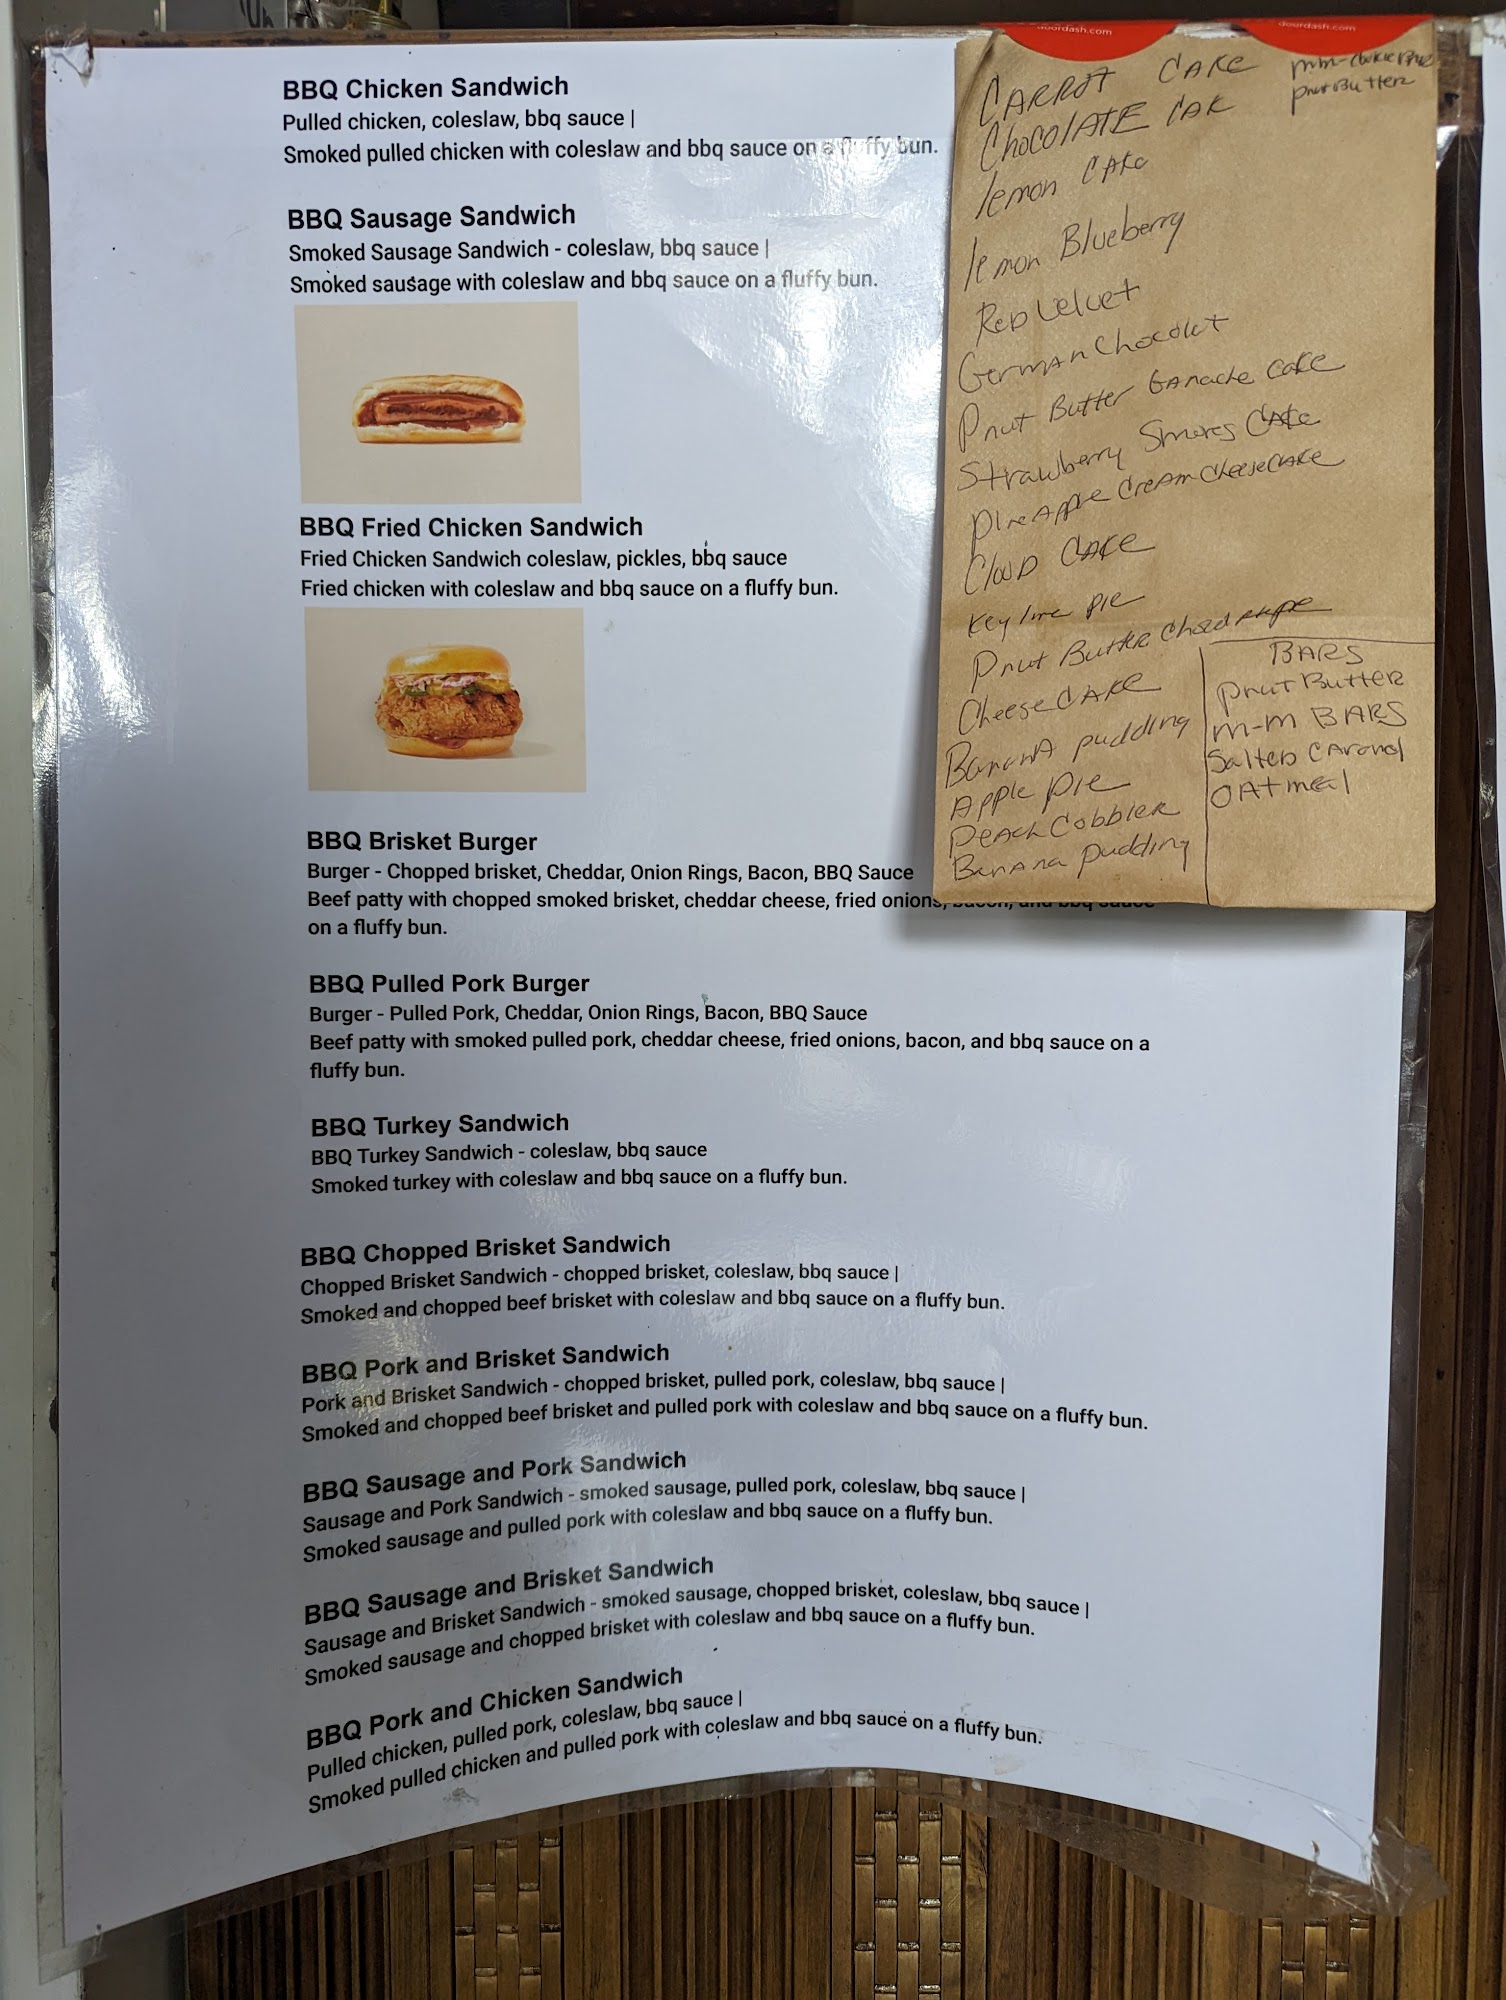 BBQ Chicken Sandwich
Pulled chicken, coleslaw, bbq sauce |
Smoked pulled chicken with coleslaw and bbq sauce on a fluffy bun.
BBQ Sausage Sandwich
Smoked Sausage Sandwich - coleslaw, bbq sauce |
Smoked sausage with coleslaw and bbq sauce on a fluffy bun.
BBQ Fried Chicken Sandwich
Fried Chicken Sandwich coleslaw, pickles, bbq sauce
Fried chicken with coleslaw and bbq sauce on a fluffy bun.
BBQ Brisket Burger
Burger - Chopped brisket, Cheddar, Onion Rings, Bacon, BBQ Sauce
Beef patty with chopped smoked brisket, cheddar cheese, fried onions, bacon, and bbq sauce
on a fluffy bun.
BBQ Pulled Pork Burger
Burger - Pulled Pork, Cheddar, Onion Rings, Bacon, BBQ Sauce
Beef patty with smoked pulled pork, cheddar cheese, fried onions, bacon, and bbq sauce on a
fluffy bun.
BBQ Turkey Sandwich
BBQ Turkey Sandwich - coleslaw, bbq sauce
Smoked turkey with coleslaw and bbq sauce on a fluffy bun.
BBQ Chopped Brisket Sandwich
Chopped Brisket Sandwich - chopped brisket, coleslaw, bbq sauce |
Smoked and chopped beef brisket with coleslaw and bbq sauce on a fluffy bun.
BBQ Pork and Brisket Sandwich
Pork and Brisket Sandwich - chopped brisket, pulled pork, coleslaw, bbq sauce |
Smoked and chopped beef brisket and pulled pork with coleslaw and bbq sauce on a fluffy bun.
BBQ Sausage and Pork Sandwich
Sausage and Pork Sandwich - smoked sausage, pulled pork, coleslaw, bbq sauce |
Smoked sausage and pulled pork with coleslaw and bbq sauce on a fluffy bun.
BBQ Sausage and Brisket Sandwich
Sausage and Brisket Sandwich - smoked sausage, chopped brisket, coleslaw, bbq sauce |
Smoked sausage and chopped brisket with coleslaw and bbq sauce on a fluffy bun.
BBQ Pork and Chicken Sandwich
Pulled chicken, pulled pork, coleslaw, bbq sauce |
Smoked pulled chicken and pulled pork with coleslaw and bbq sauce on a fluffy bun.
doordash.com
doordash.com
CARROT CAKE
CHOCOLATE CAK
lemon CAKe
lemon Blueberry
Red Velvet
German Chocolet
Pnut Butter Ganache Cake
Strawberry Smores Cake
PineApple Cream CheeseCake
Cloud CAKE
Key lime Pie
Pnut Butter
CheeseCAKE
BananA pudding
Apple Pie
Peach Cobbler
BanAna pudding
PnutButter
BARS
PnutButter
m-m BARS
Salted Caramel
OAtmeal